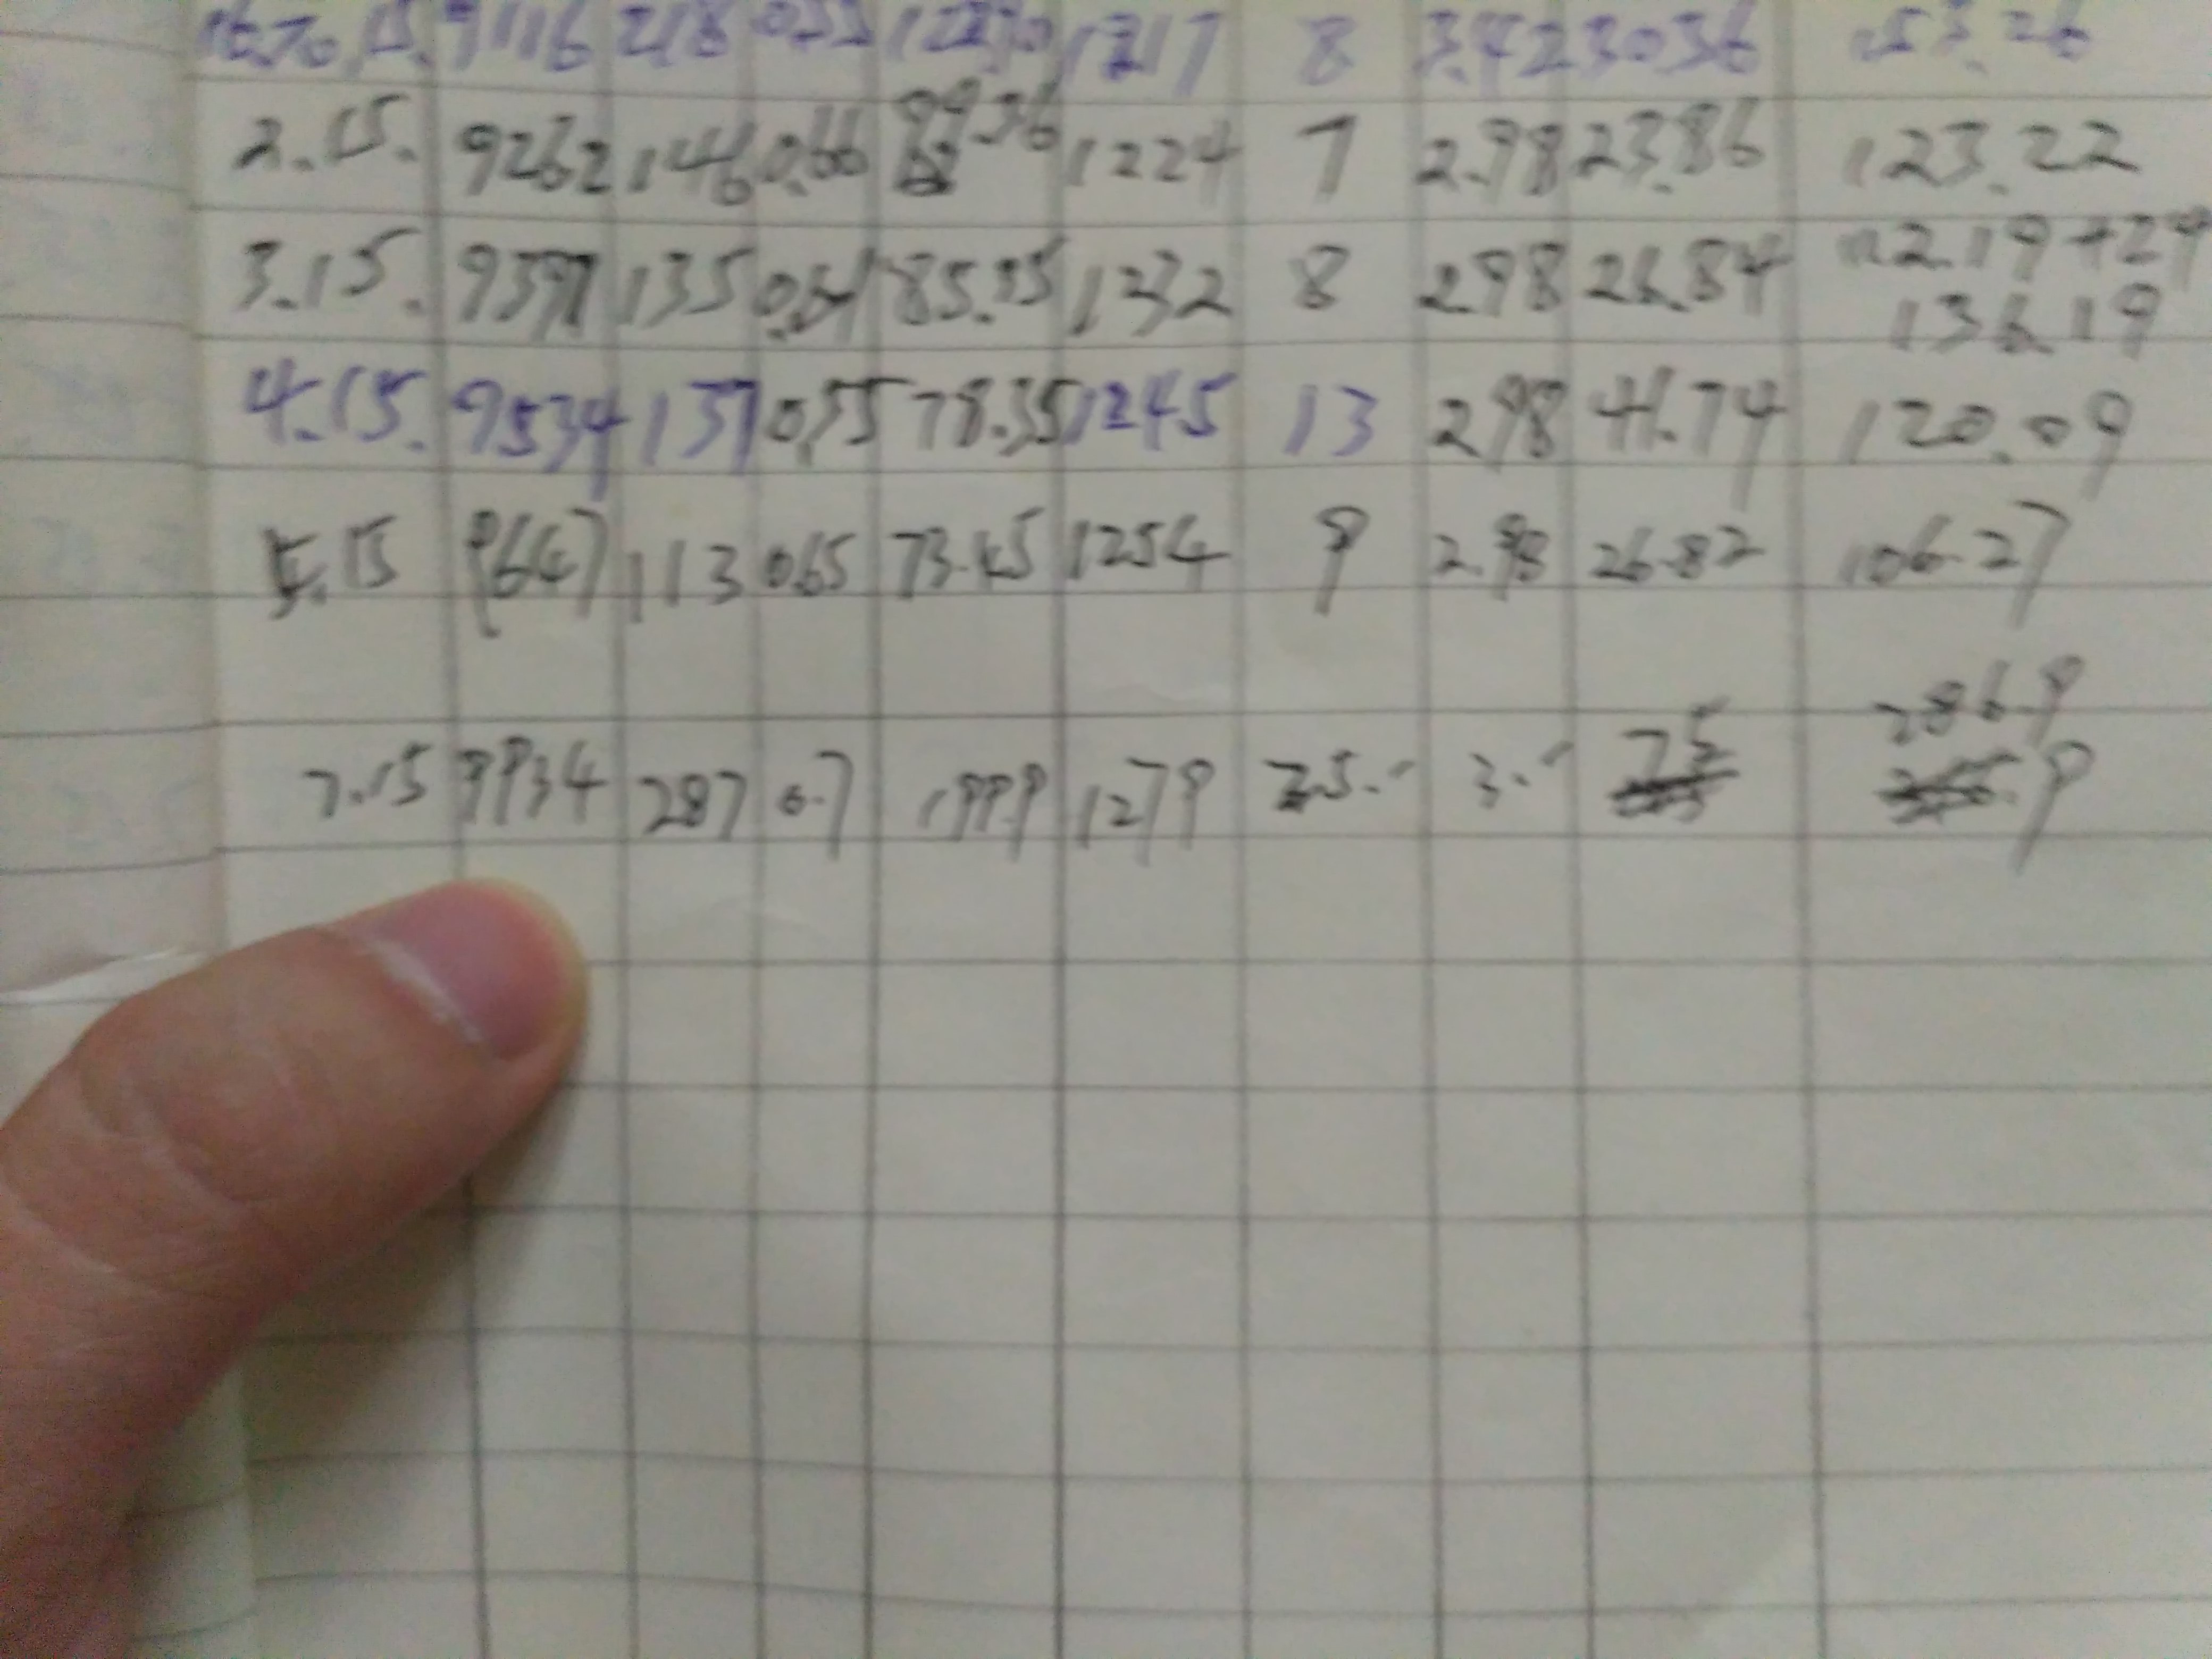 15. 9116 218 1217 8 3.42 30 36 153.26
2.15. 9262 146 0.66 99 36 1224 7 2.98 23.86 123.22
3.15. 9397 135 85.05 1232 8 2.98 26.84 112.19+24
136.19
4.15. 9534 137 0.55 78.35 1245 13 2.98 41.74 120.09
5.15 9647 113 0.65 73.45 1254 9 2.98 26.82 106.27
286.9
7.15 9934 287 0.7 199.9 1279 25. 3. 75